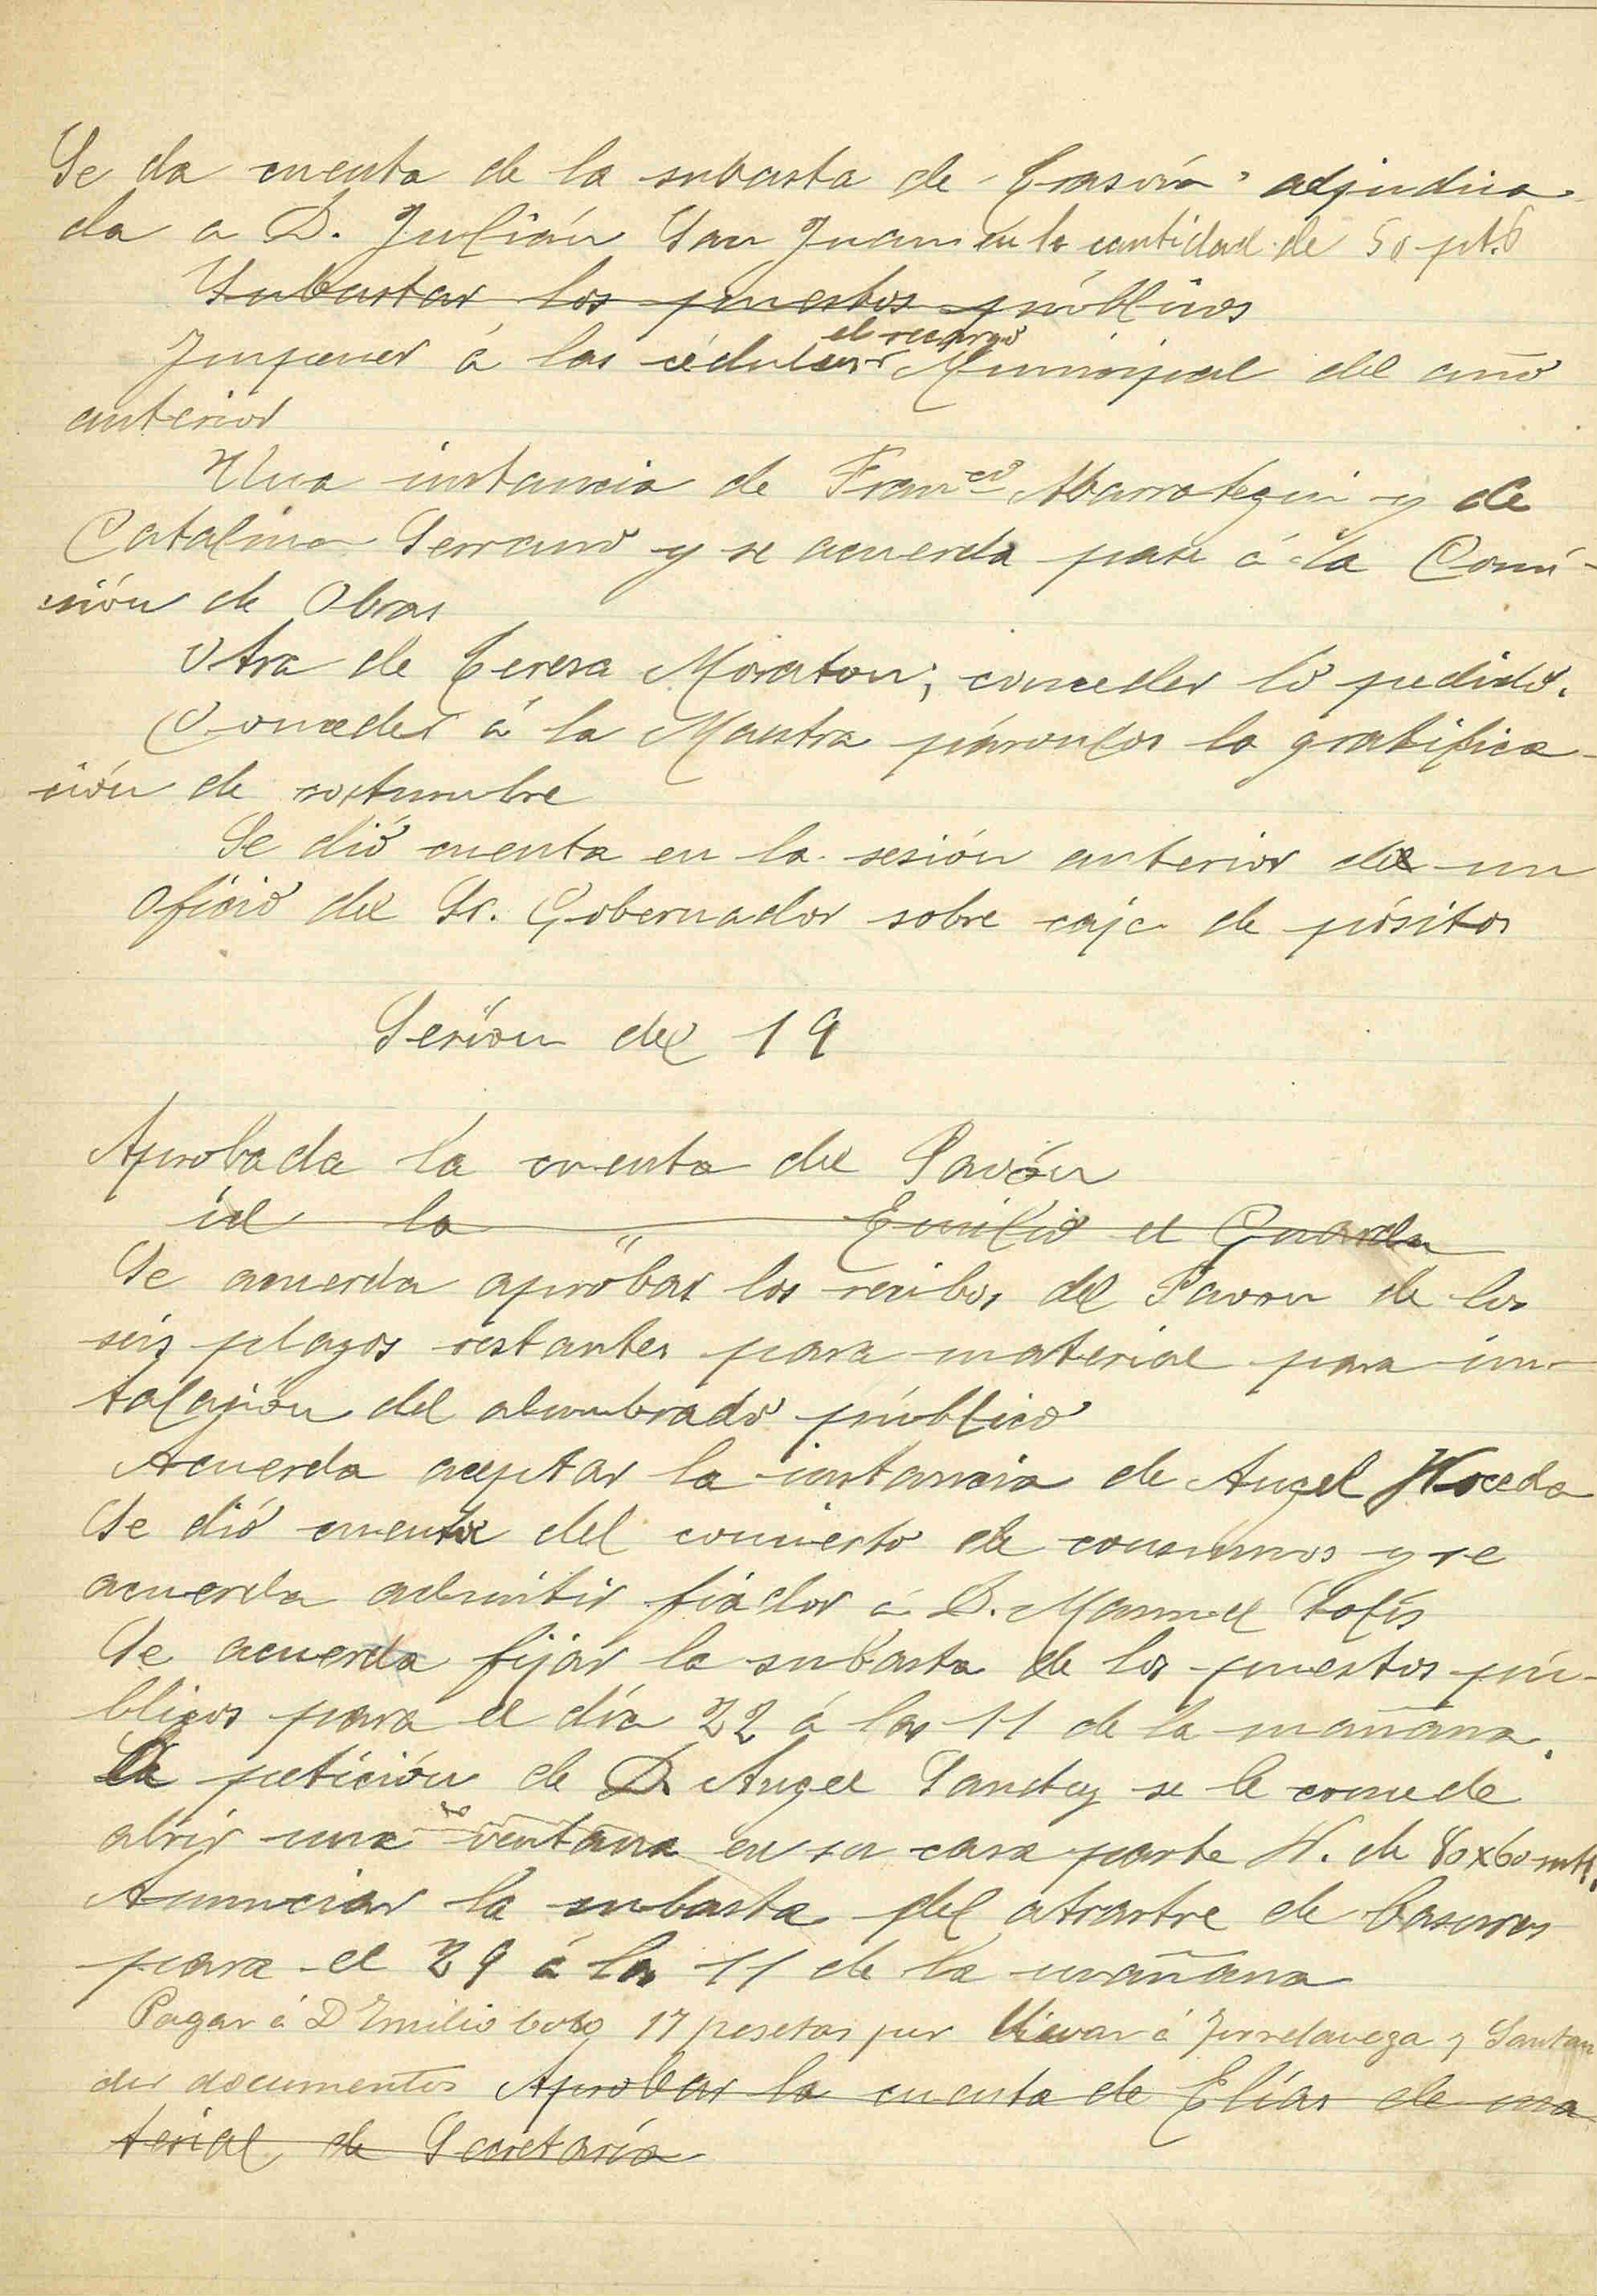 Se da cuenta de la subasta de "Trasvía" adjudica-
da a D. Julián San Juan en la cantidad de 50 pts
Subastar los puestos públicos
Imponer á las cédulas el recargo Municipal del año
anterior
Una instancia de Franco Abarrategui y de
Catalina Serrano y se acuerda pase á la Comi-
sión de Obras
Otra de Teresa Moraton, conceder lo pedido.
Conceder á la Maestra párvulos la gratifica-
ción de costumbre
Se dió cuenta en la sesión anterior de un
Oficio del Sr. Gobernador sobre caja de pósitos
Sesión del 19
Aprobada la cuenta del Pavón
id la " Emilio el Guarda
Se acuerda aprobar los recibos del Pavon de los
seis plazos restantes para material para ins-
talación del alumbrado público
Acuerda aceptar la instancia de Angel Noceda
Se dió cuenta del concierto de consumos y se
acuerda admitir fiador á D. Manuel Solís
Se acuerda fijar la subasta de los puestos pú-
blicos para el día 22 á las 11 de la mañana.
La petición de D. Angel se le concede
abrir una ventana en su casa parte N. de 80x60 mts.
Anunciar la subasta del atrastre de basuras
para el 29 á las 11 de la mañana
Pagar á D Emilio 17 pesetas por llevar á Torrelavega y Santan
der documentos Aprobar la cuenta de Elías de ma
terial de Secretaría